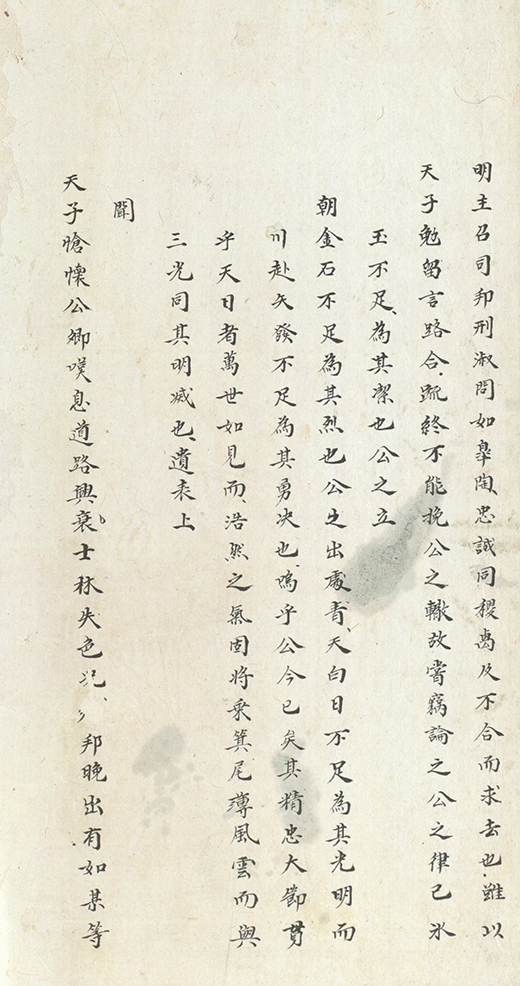 明主召司邦刑淑問如臯陶忠誠同稷卨及不合而求去也雖以
天子勉留言路合疏終不能挽公之轍故嘗竊論之公之律己氷
玉不足為其潔也公之立
朝金石不足為其烈也公之出處青天白日不足為其光明而
川赴矢發不足為其勇决也嗚乎公今已矣其精忠大節貫
乎天日者萬世如見而浩然之氣固將乗箕尾薄風雲而與
三光同其明滅也遺表上
聞
天子愴懷公卿嘆息道路興哀士林失色况邦晚出有如某等